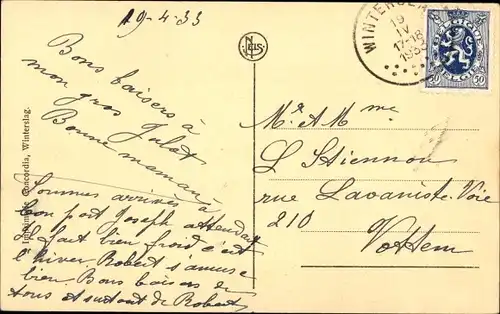 19-4-33
Bons baisers à
mon gros
Bonne maman
Sommes arrivés à
bon port Joseph attendait
il fait bien froid c'est
l'hiver Robert s'amuse
bien. Bons baisers de
tous et surtout de Robert
Imprimerie Concordia, Winterslag.
NELS
WINTERSLAG
19
IV
17-18
1933
BELGIQUE
BELGIË
50 50
Mr & Mme
L Stiennon
rue Lavaniste-Voie
210
Vottem